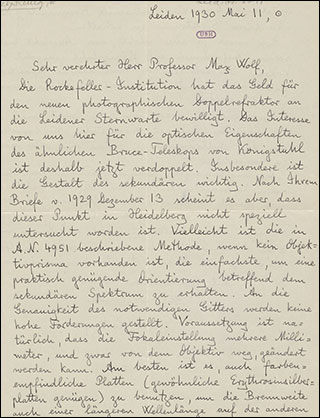 Leiden 1930 Mai 11, 0
UBH
Sehr verehrter Herr Professor Max Wolf,
Die Rockefeller-Institution hat das Geld für
den neuen photographischen Doppelrefraktor an
die Leidener Sternwarte bewilligt. Das Interesse
von uns hier für die optischen Eigenschaften
des ähnlichen Bruce-Teleskops von Königstuhl
ist deshalb jetzt verdoppelt. Insbesondere ist
die Gestalt des sekundären wichtig. Nach Ihrem
Briefe v. 1929 Dezember 13 scheint es aber, dass
dieser Punkt in Heidelberg nicht speziell
untersucht worden ist. Vielleicht ist die in
A.N. 4951 beschriebene Methode, wenn kein Objek-
tivprisma vorhanden ist, die einfachste, um eine
praktisch genügende Orientierung betreffend dem
sekundären Spektrum zu erhalten. An die
Genauigkeit des notwendigen Gitters werden keine
hohe Forderungen gestellt. Voraussetzung ist na-
türlich, dass die Fokaleinstellung mehrere Milli-
meter, und zwar von dem Objektiv weg, geändert
werden kann. Am besten ist es, auch farben-
empfindliche Platten (gewöhnliche Erythrosinsilber-
platten genügen) zu benützen, um die Brennweite
auch einer längeren Wellenlänge an der anderen